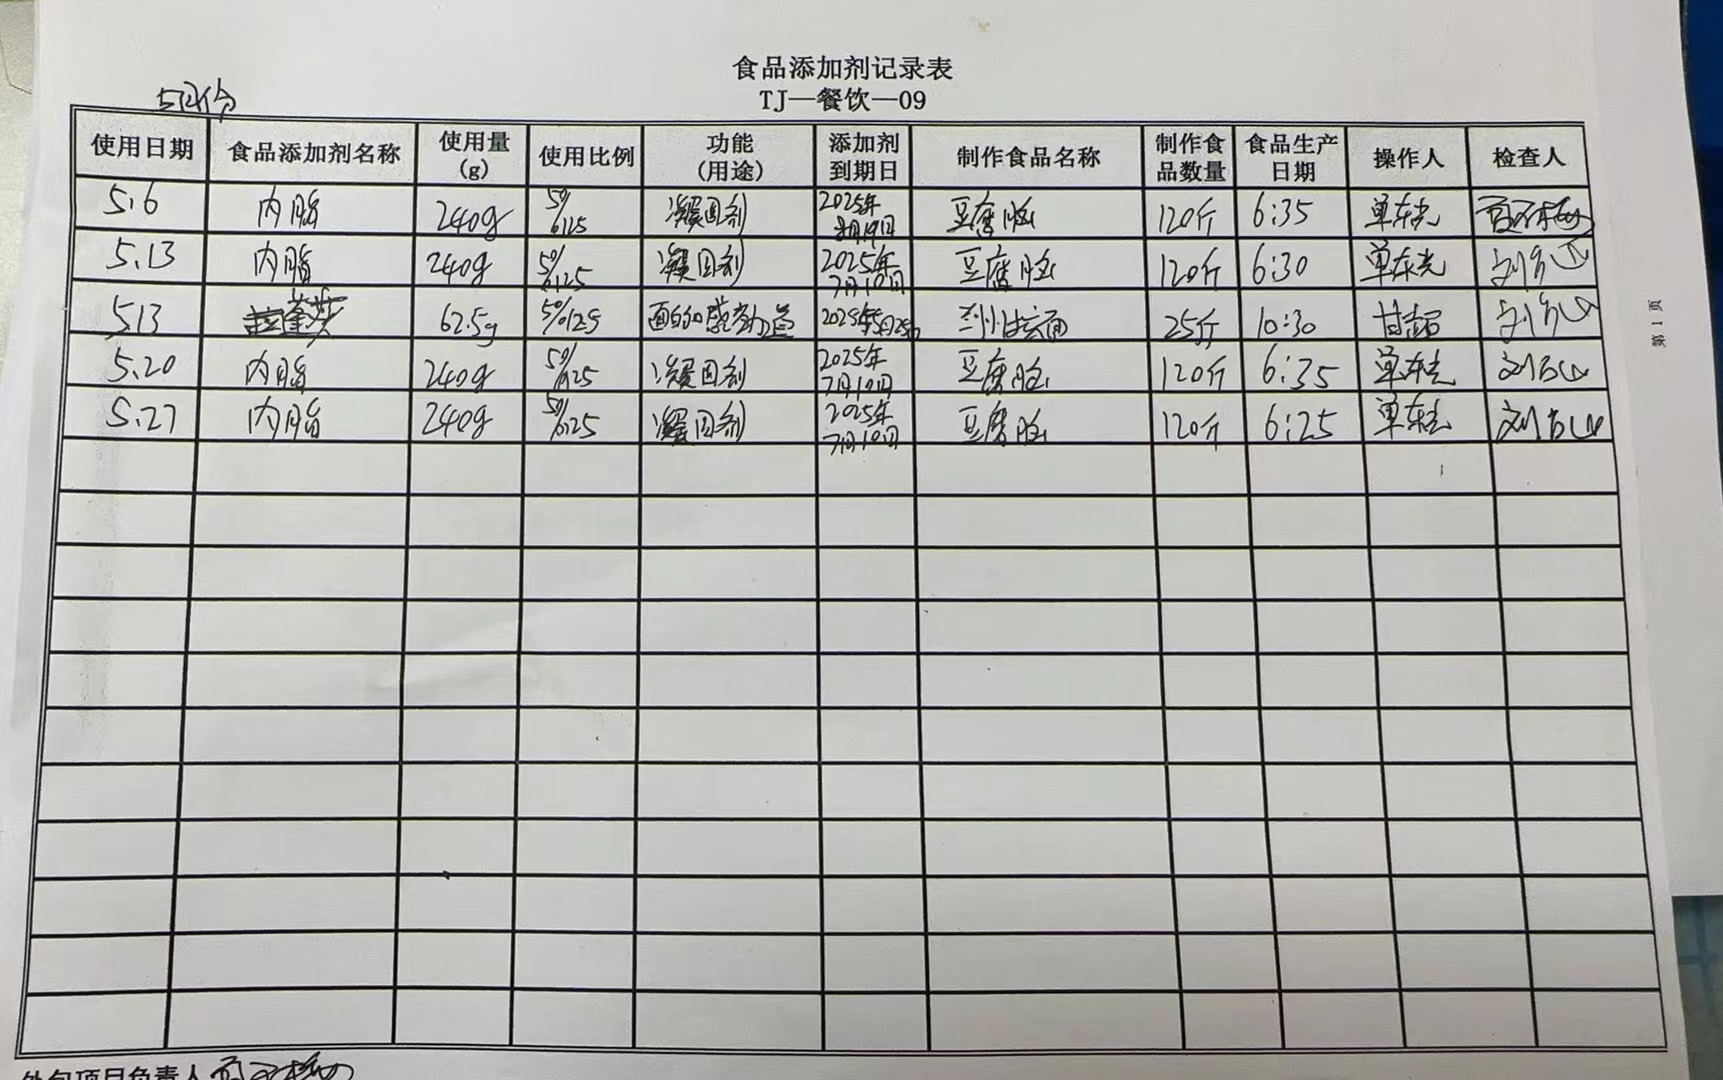 食品添加剂记录表
TJ—餐饮—09
5月份
使用日期 食品添加剂名称 使用量(g) 使用比例 功能(用途) 添加剂到期日 制作食品名称 制作食品数量 食品生产日期 操作人 检查人
5.6 内脂 240g 50/6125 凝固剂 2025年 豆腐脑 120斤 6:35 单东光
5.13 内脂 240g 50/6125 凝固剂 2025年7月10日 豆腐脑 120斤 6:30 单东光
5.13 62.5g 面的口感劲道 25斤 10:30
5.20 内脂 240g 50/6125 凝固剂 2025年7月10日 豆腐脑 120斤 6:35 单东光
5.27 内脂 240g 50/6125 凝固剂 2025年7月10日 豆腐脑 120斤 6:25 单东光
第 1 页
外包项目负责人